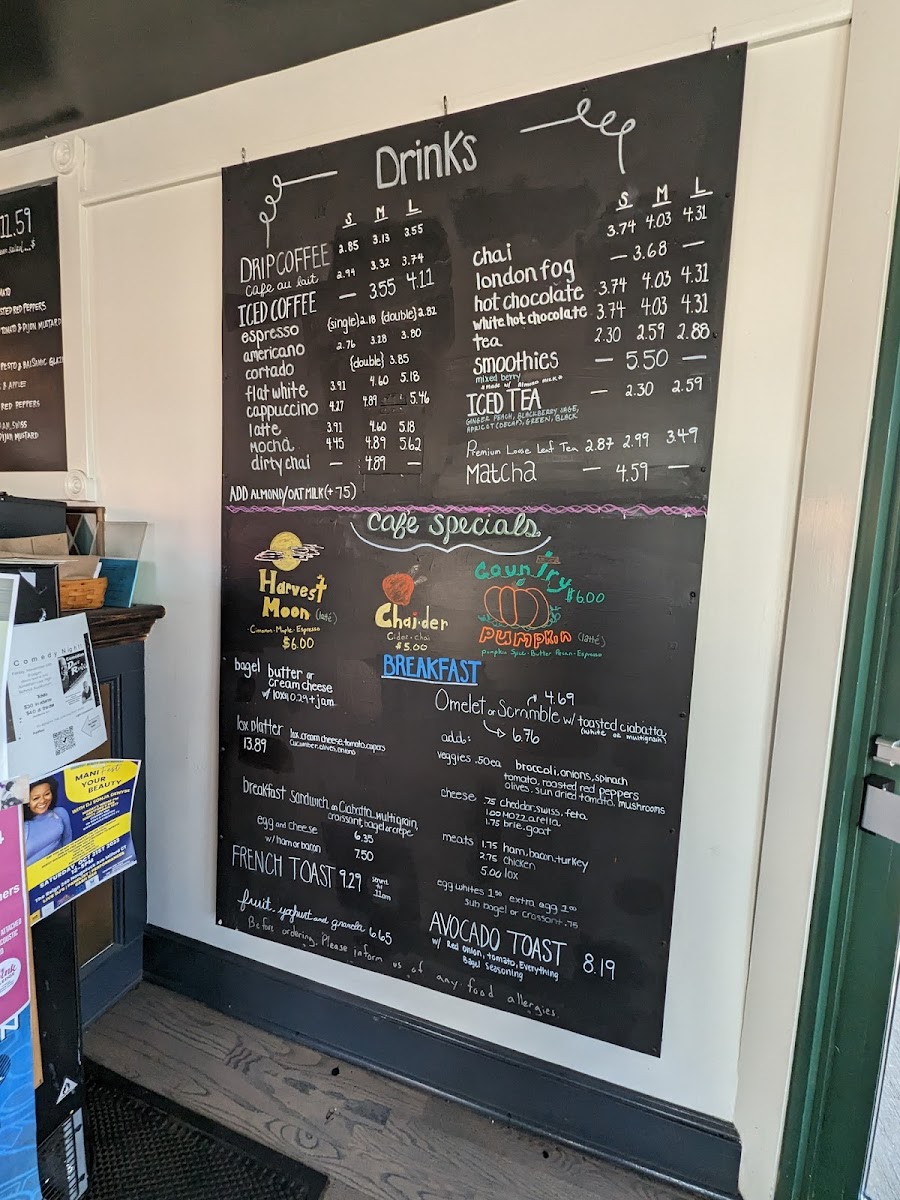 11.59
RED PEPPERS
TOMATO & DIJON MUSTARD
PESTO & BALSAMIC GLAZE
& APPLE
RED PEPPERS
SWISS
DIJON MUSTARD
Drinks
S M L
DRIP COFFEE 2.85 3.13 3.55
Cafe au lait 2.94 3.32 3.74
ICED COFFEE — 3.55 4.11
espresso (single) 2.18 (double) 2.82
americano 2.76 3.28 3.80
cortado (double) 3.85
flat white 3.91 4.60 5.18
cappuccino 4.27 4.89 5.46
latte 3.91 4.60 5.18
Mocha 4.45 4.89 5.62
dirty chai — 4.89 —
ADD ALMOND/OAT MILK (+75)
S M L
chai 3.74 4.03 4.31
london fog — 3.68 —
hot chocolate 3.74 4.03 4.31
white hot chocolate 3.74 4.03 4.31
tea 2.30 2.59 2.88
smoothies — 5.50 —
mixed berry
*made w/ almond milk*
ICED TEA — 2.30 2.59
GINGER PEACH, BLACKBERRY SAGE,
APRICOT (DECAF), GREEN, BLACK
Premium Loose Leaf Tea 2.87 2.99 3.49
Matcha — 4.59 —
café specials
Harvest
Moon (latté)
Cinnamon-Maple-Espresso
$6.00
Chai·der
Cider·chai
$5.00
Country
$6.00
Pumpkin (latté)
Pumpkin Spice · Butter Pecan · Espresso
BREAKFAST
bagel butter or
cream cheese
w/ lox 10.29 + jam
lox platter lox, cream cheese, tomato, capers
13.89 cucumber, olives, onions
breakfast sandwich on Ciabatta, multigrain,
croissant, bagel or crepe
egg and cheese 6.35
w/ ham or bacon 7.50
FRENCH TOAST 9.29
11am
fruit, yoghurt and granola 6.65
Omelet or Scramble w/ toasted ciabatta
4.69
(white or multigrain)
6.76
add:
veggies .50ea broccoli, onions, spinach
tomato, roasted red peppers
olives, sun dried tomato, mushrooms
cheese .75 cheddar, swiss, feta
1.00 mozzarella
1.75 brie, goat
meats 1.75 ham, bacon, turkey
2.75 chicken
5.00 lox
egg whites 1.50 extra egg 1.00
sub bagel or crossant .75
AVOCADO TOAST 8.19
w/ Red onion, tomato, Everything
Bagel Seasoning
Before ordering, Please inform us of any food allergies
Comedy Night
MANIFest
YOUR
BEAUTY
WITH DJ SONJA DENYSE